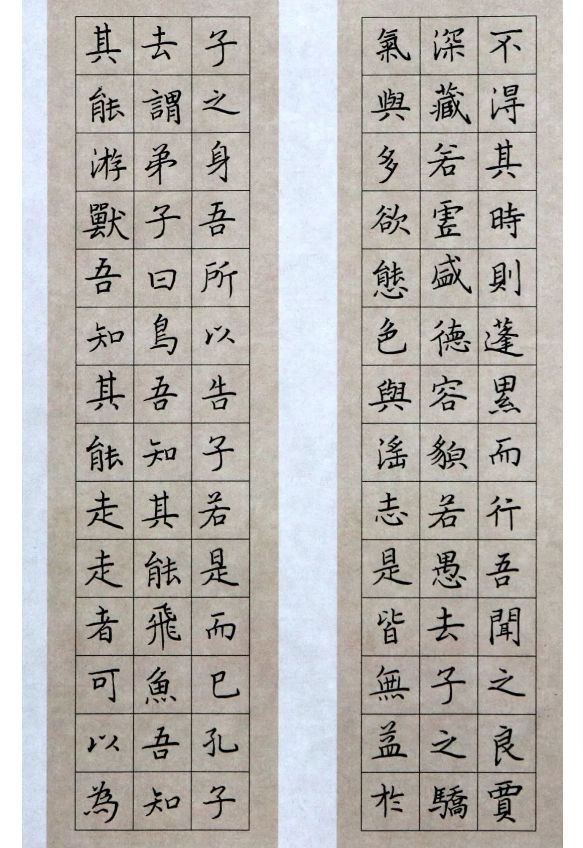 不得其時則蓬累而行吾聞之良賈
深藏若虛盛德容貌若愚去子之驕
氣與多欲態色與淫志是皆無益於
子之身吾所以告子若是而已孔子
去謂弟子曰鳥吾知其能飛魚吾知
其能游獸吾知其能走走者可以為